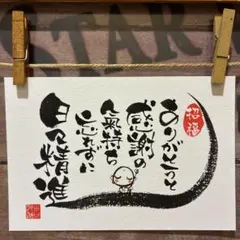 STAR
招福
ありがとうと
感謝の
気持ち
忘れずに
日々精進